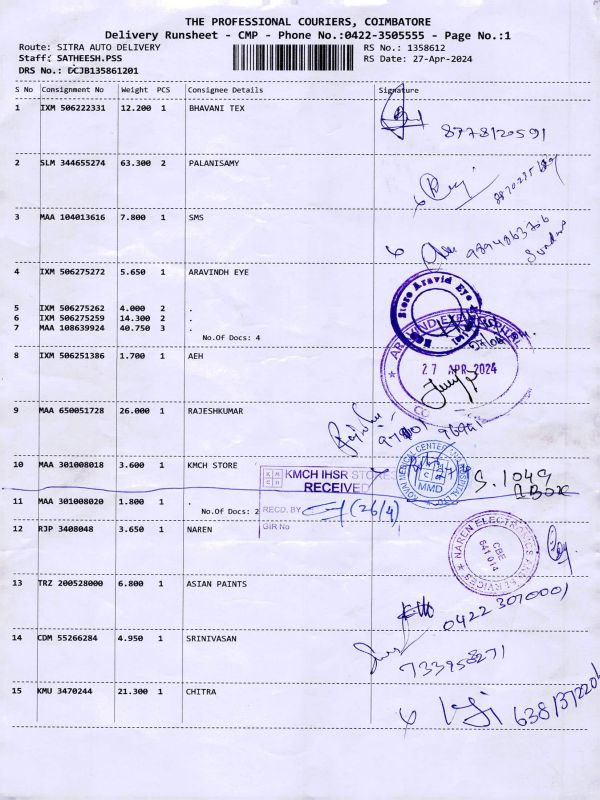 THE PROFESSIONAL COURIERS, COIMBATORE
Delivery Runsheet - CMP - Phone No.:0422-3505555 - Page No.:1
Route: SITRA AUTO DELIVERY RS No.: 1358612
Staff: SATHEESH.PSS RS Date: 27-Apr-2024
DRS No.: DCJB135861201
S No Consignment No Weight PCS Consignee Details Signature
1 IXM 506222331 12.200 1 BHAVANI TEX
8778120591
2 SLM 344655274 63.300 2 PALANISAMY
3 MAA 104013616 7.800 1 SMS
4 IXM 506275272 5.650 1 ARAVINDH EYE
Store Aravid Eye
5 IXM 506275262 4.000 2 .
6 IXM 506275259 14.300 2 .
7 MAA 108639924 40.750 3 .
No.Of Docs: 4
8 IXM 506251386 1.700 1 AEH
27 APR 2024
9 MAA 650051728 26.000 1 RAJESHKUMAR
10 MAA 301008018 3.600 1 KMCH STORE
KMCH IHSR STORES
RECEIVED
MMD
S. 1049
2 BOX
11 MAA 301008020 1.800 1 .
No.Of Docs: 2
RECD. BY (26/4)
GIR No
12 RJP 3408048 3.650 1 NAREN
NAREN ELECTRONICS AND SERVICES
CBE
641 014
13 TRZ 200528000 6.800 1 ASIAN PAINTS
0422 3070001
14 CDM 55266284 4.950 1 SRINIVASAN
15 KMU 3470244 21.300 1 CHITRA